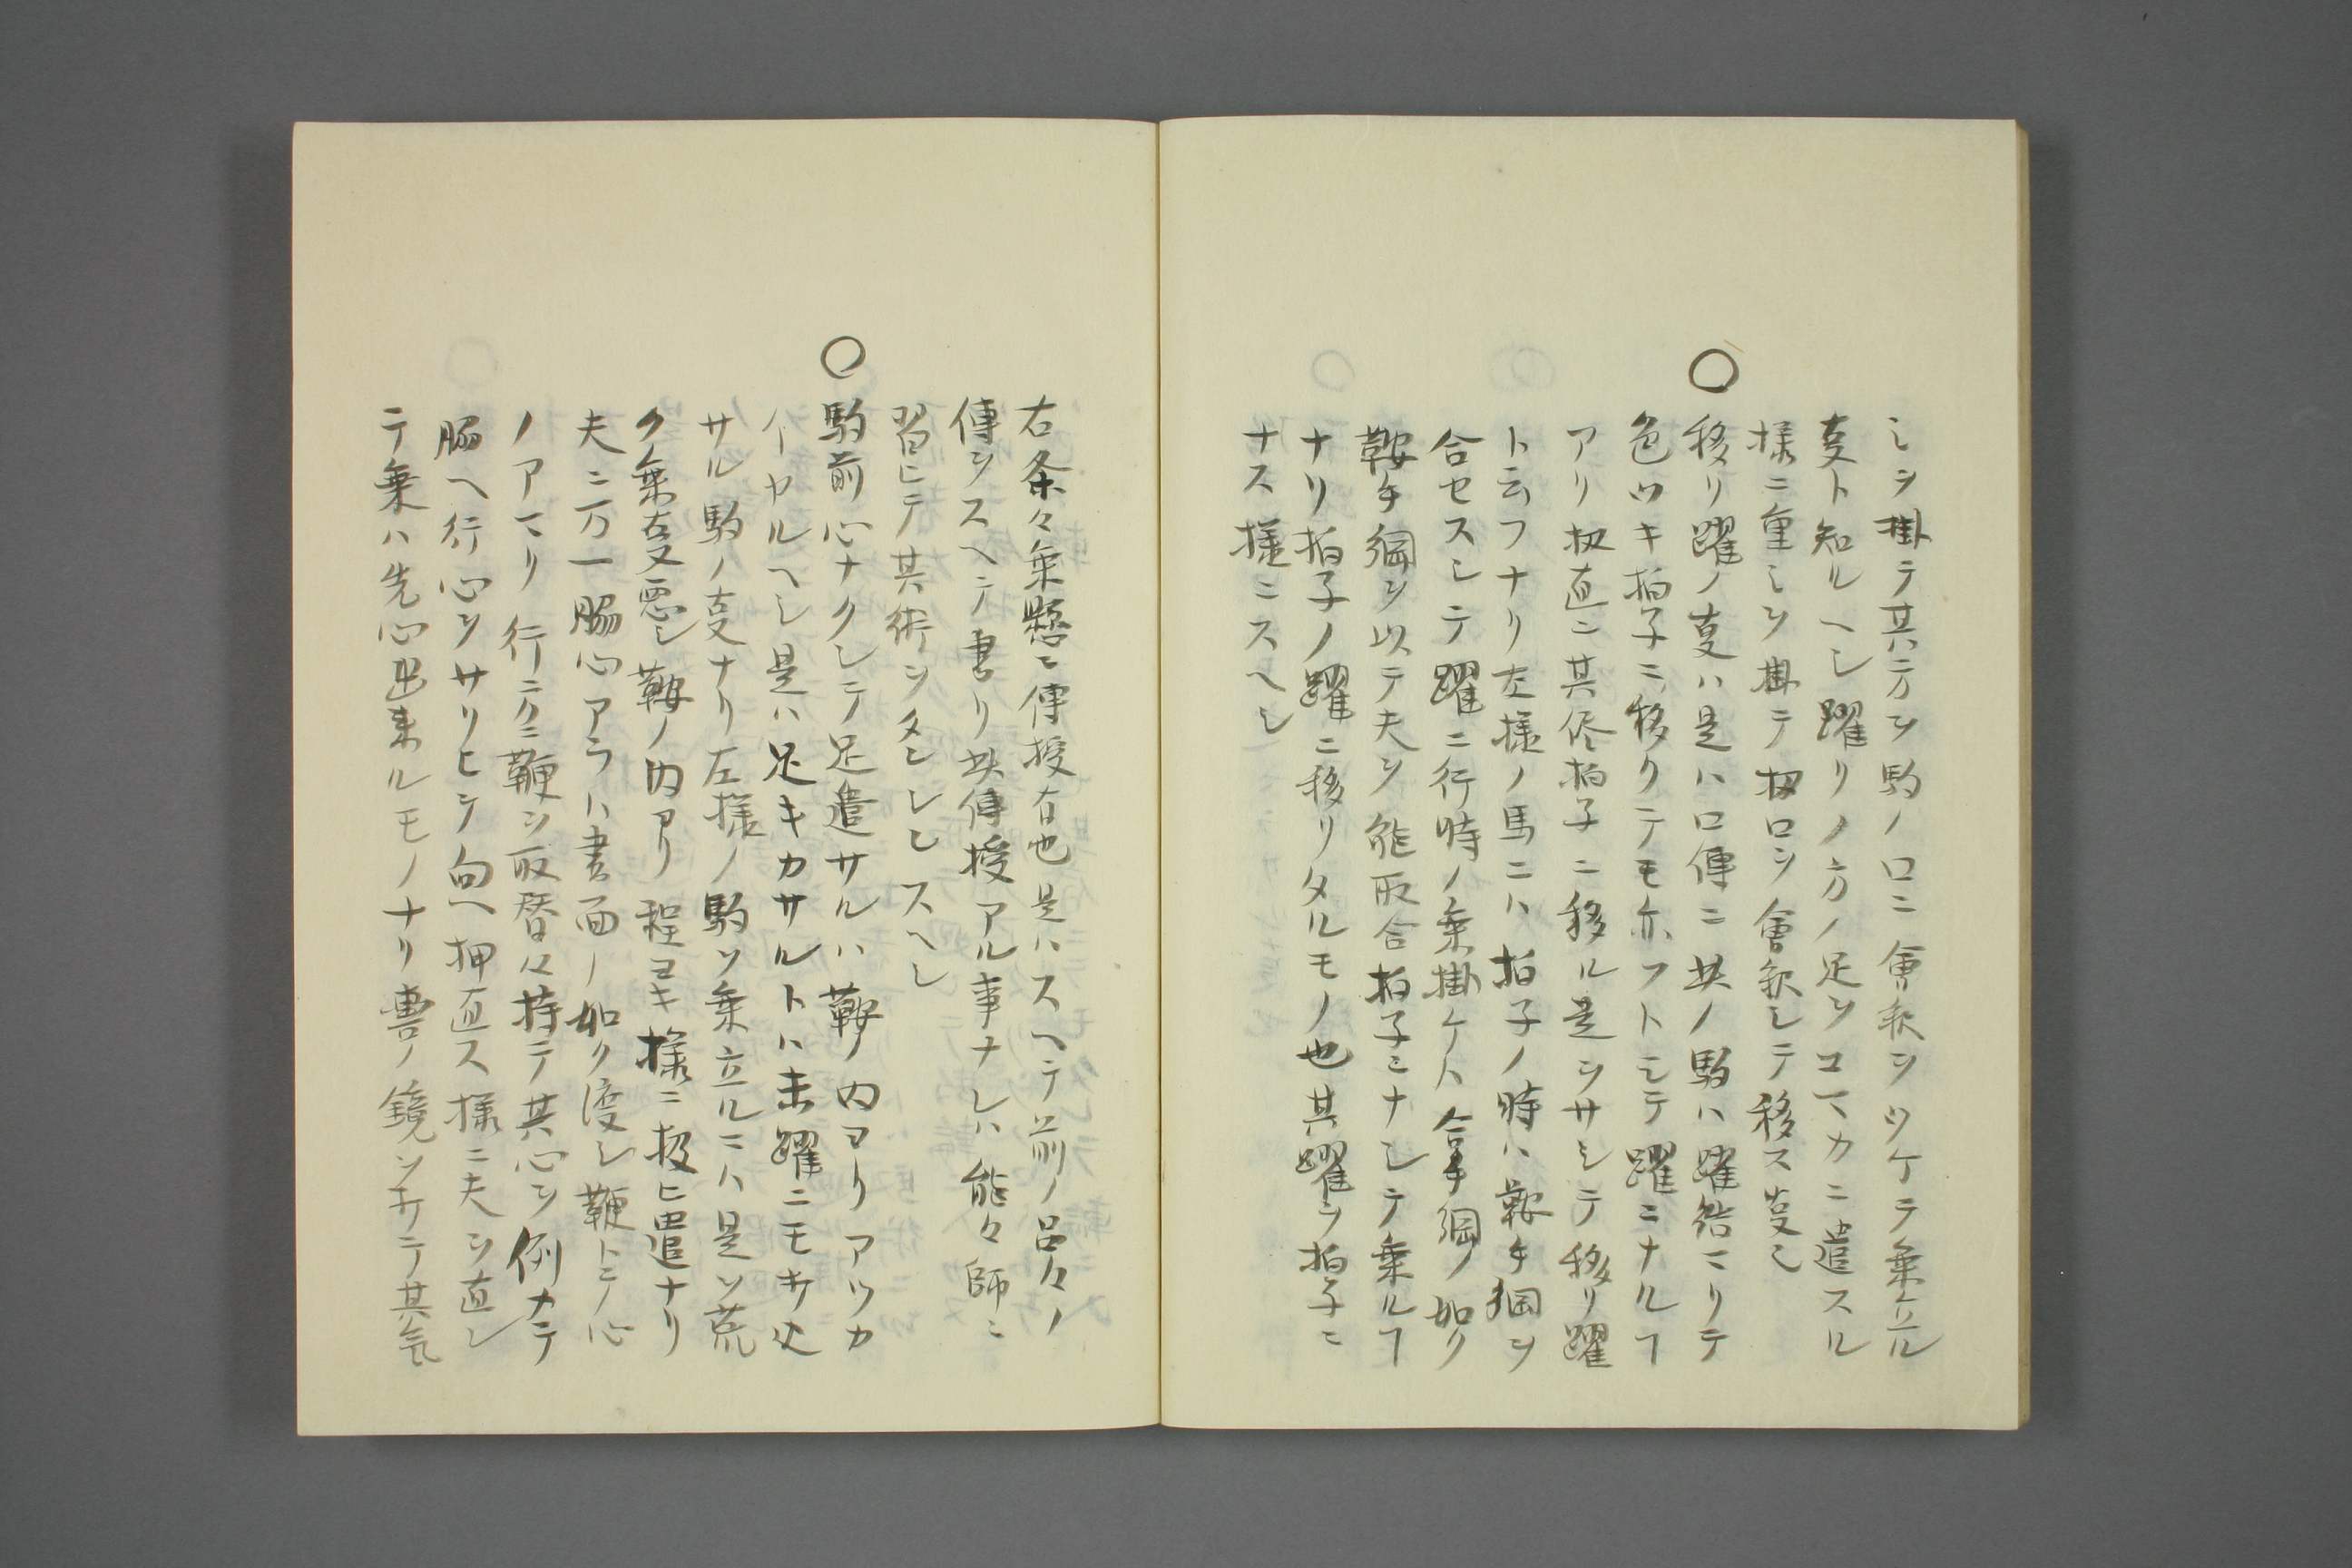 シヲ掛テ其二方ヲ駒ノ口ニ會釈ヲツケテ乗立ル
叓ト知ルヘシ躍リノ方ノ足ヲコマカニ遣スル
様ニ重シヲ掛テ扱口ヲ會釈シテ移ス叓也
○移リ躍ノ叓ハ是ハ口傳ニ其ノ駒ハ躍
色ツキ拍子ニ移クテモ亦フトシテ躍ニナルヿ
アリ扱直ニ其侭拍子ニ移ル是ヲサシテ移リ躍
ト云フナリ左様ノ馬ニハ拍子ノ時ハ鞍手綱ヲ
合セスシテ躍ニ行時ノ乗掛ケト手綱ノ如ク
鞍手綱ヲ以テ夫ヲ能取合拍子ミナシテ乗ルヿ
ナリ拍子ノ躍ニ移リタルモノ也其躍ヲ拍子ニ
ナス様ニスヘシ
右条々乗懸ニ傳授有也是ハスヘテ前ノ呂々ノ
傳ヲスヘテ書リ其傳授アル事ナレハ能々師ニ
習ヒテ其術ヲタレヒスヘシ
○駒前心ナクシテ足遣サルハ鞍ノ内ヨリアツカ
イヤルヘシ是ハ足キカサルトハ未躍ニモキ込
サル駒ノ叓ナリ左様ノ駒ヲ乗立ルニハ是ヲ荒
ク乗叓悪シ鞍ノ内アリ程ヨキ様ニ扱ヒ遣ナリ
夫ニ万一脇心アラハ書面ノ如ク渡シ鞭トニノ心
ノアマリ行ニクニ鞭ヲ取替ハ持テ其心ヲ例カテ
脇ヘ行心ヲサリヒテ向ヘ押直ス様ニ夫ヲ直シ
テ乗ハ先心出来ルモノナリ轡ノ鏡ヲキテ其気